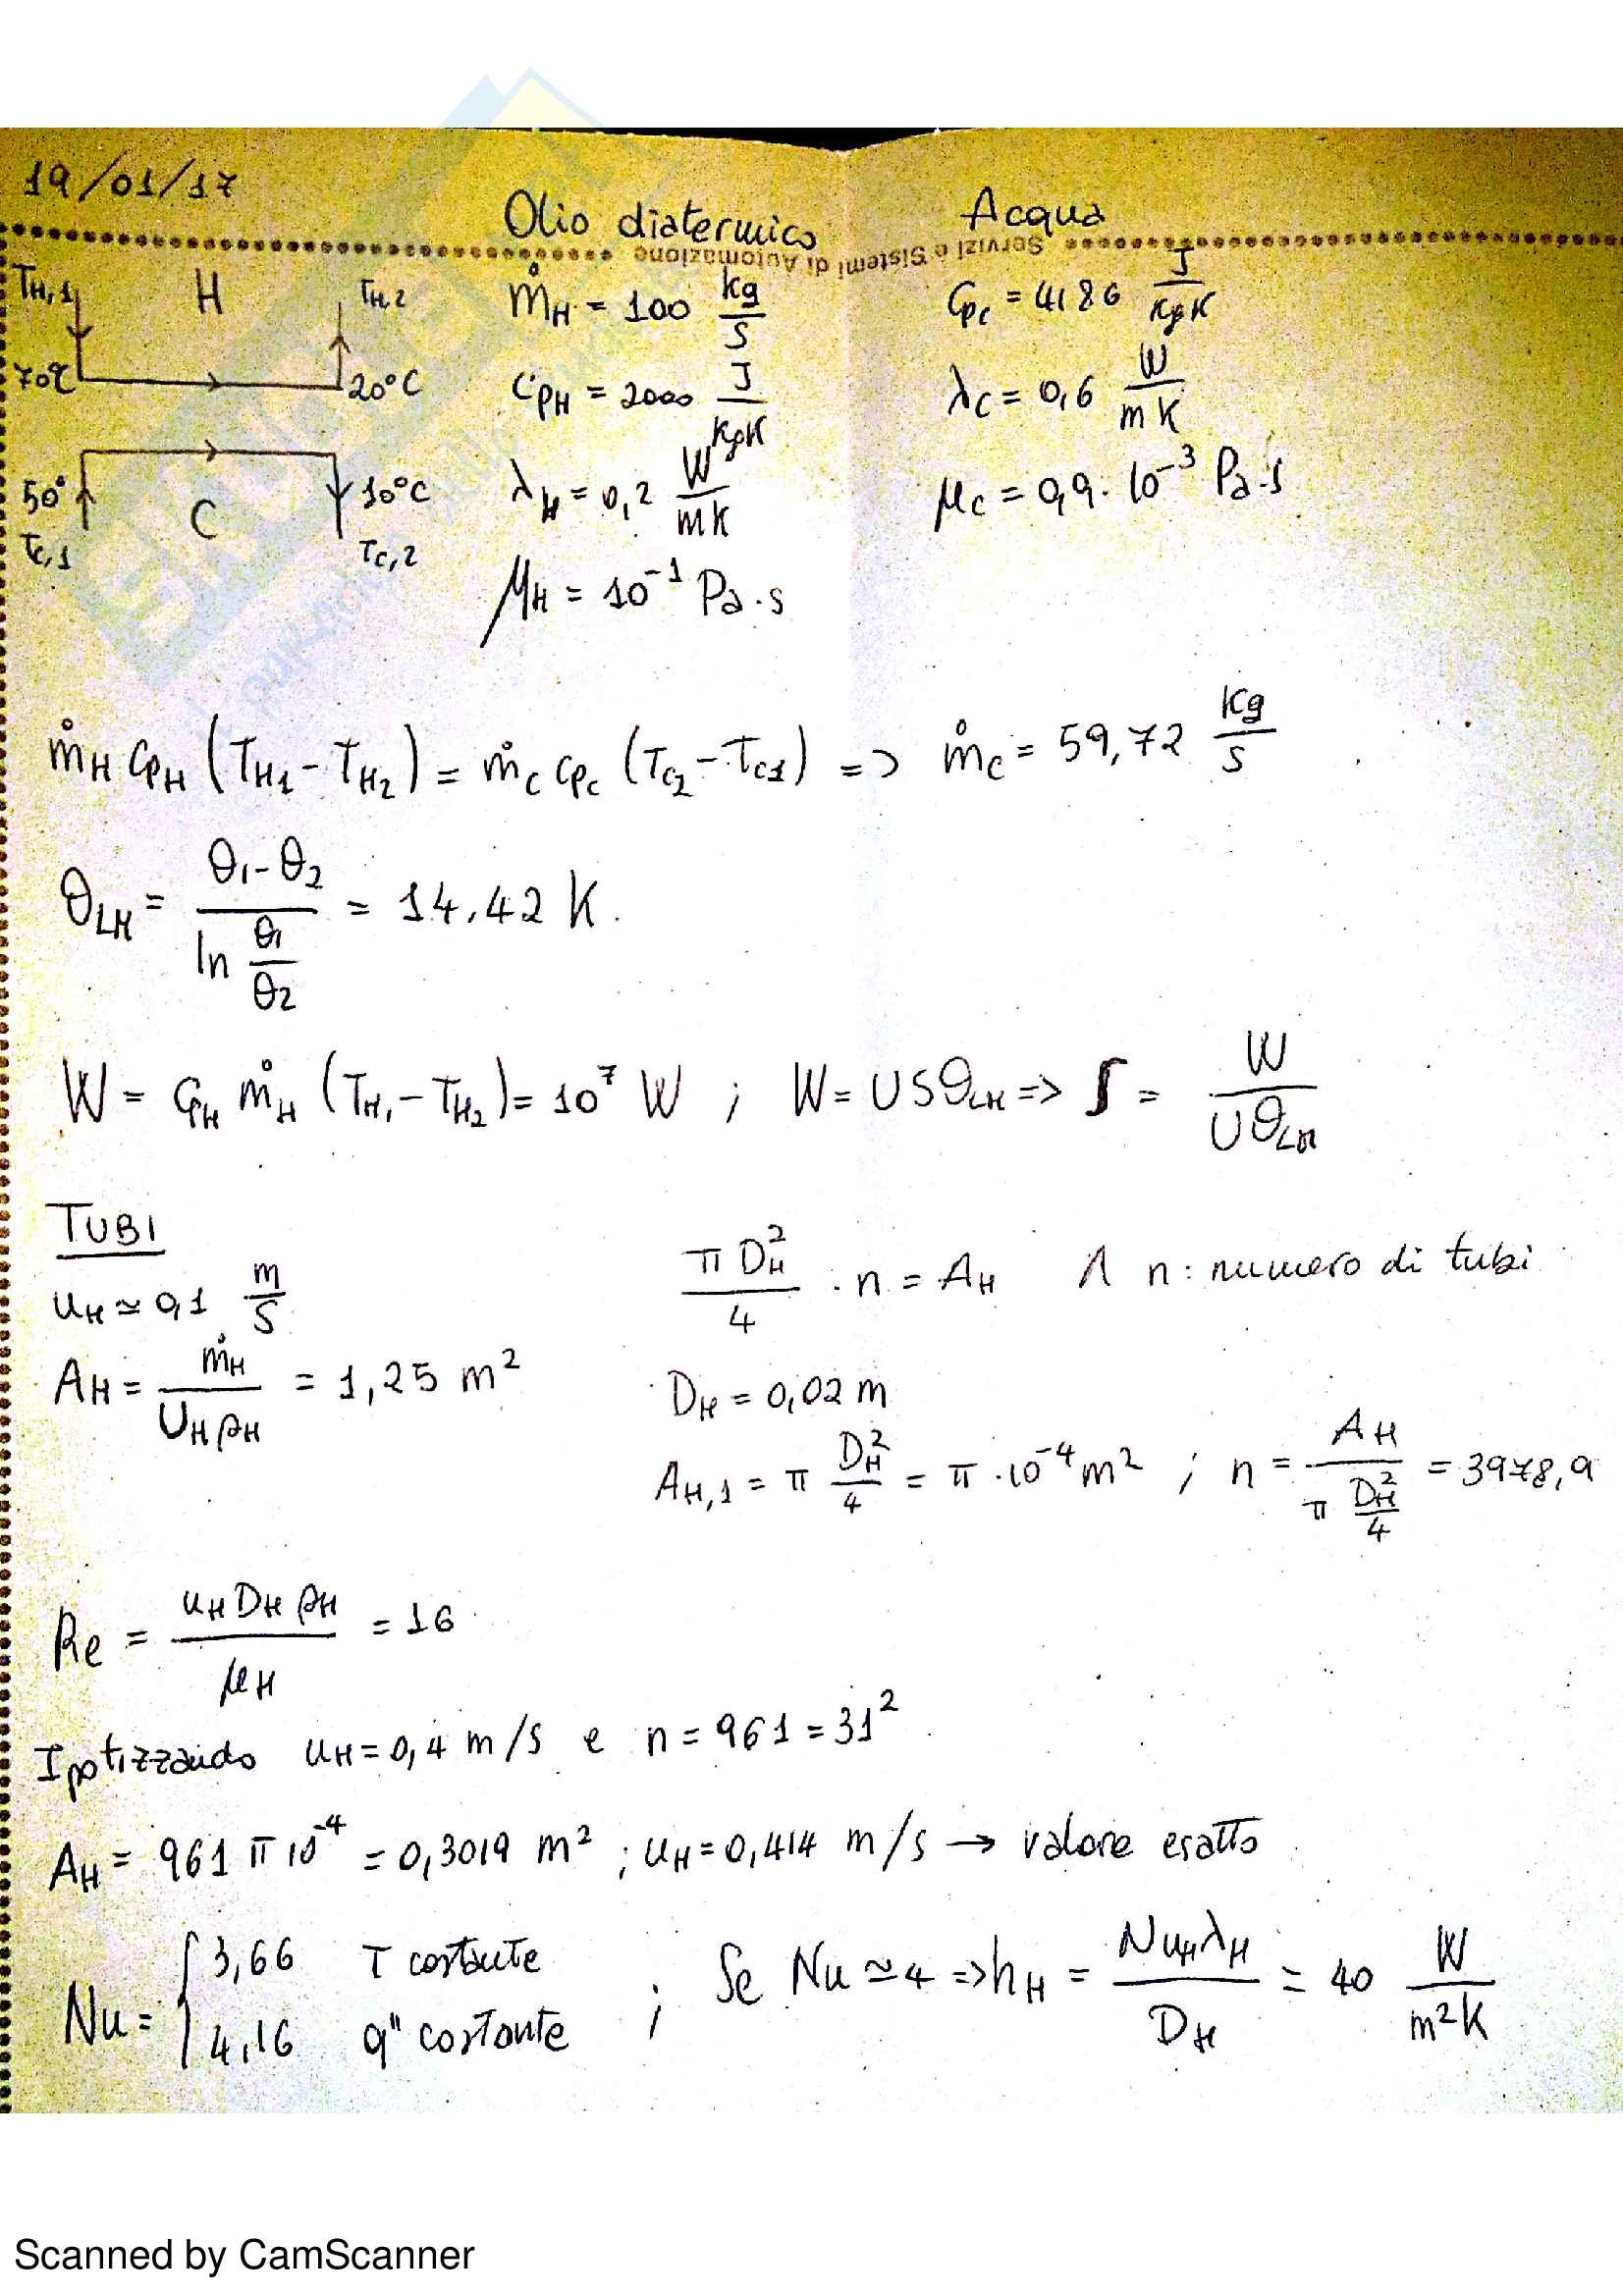 19/01/17
Olio diatermico
Acqua
Servizi e Sistemi di Automazione
T_H,1 H T_H,2
70℃ 20°C
50° 10°C
T_C,1 C T_C,2
ṁ_H = 100 kg/s
C_pH = 2000 J/kgK
λ_H = 0,2 W/mK
μ_H = 10^-1 Pa·s
C_pc = 4186 J/kgK
λ_C = 0,6 W/mK
μ_C = 0,9·10^-3 Pa·s
ṁ_H C_pH (T_H1 - T_H2) = ṁ_C C_pc (T_C2 - T_C1) => ṁ_C = 59,72 kg/s
θ_LM = (θ_1 - θ_2) / (ln θ_1/θ_2) = 14,42 K.
W = C_pH ṁ_H (T_H1 - T_H2) = 10^7 W ; W = U S θ_LM => S = W / (U θ_LM)
TUBI
u_H ≃ 0,1 m/s
A_H = ṁ_H / (U_H ρ_H) = 1,25 m^2
π D_H^2 / 4 · n = A_H Λ n: numero di tubi
D_H = 0,02 m
A_H,1 = π D_H^2/4 = π·10^-4 m^2 ; n = A_H / (π D_H^2/4) = 3978,9
Re = u_H D_H ρ_H / μ_H = 16
Ipotizzando u_H = 0,4 m/s e n = 961 = 31^2
A_H = 961 π 10^-4 = 0,3019 m^2 ; u_H = 0,414 m/s → valore esatto
Nu = { 3,66 T costante
4,16 q" costante
; Se Nu ≃ 4 => h_H = Nu_H λ_H / D_H = 40 W/m^2K
Scanned by CamScanner